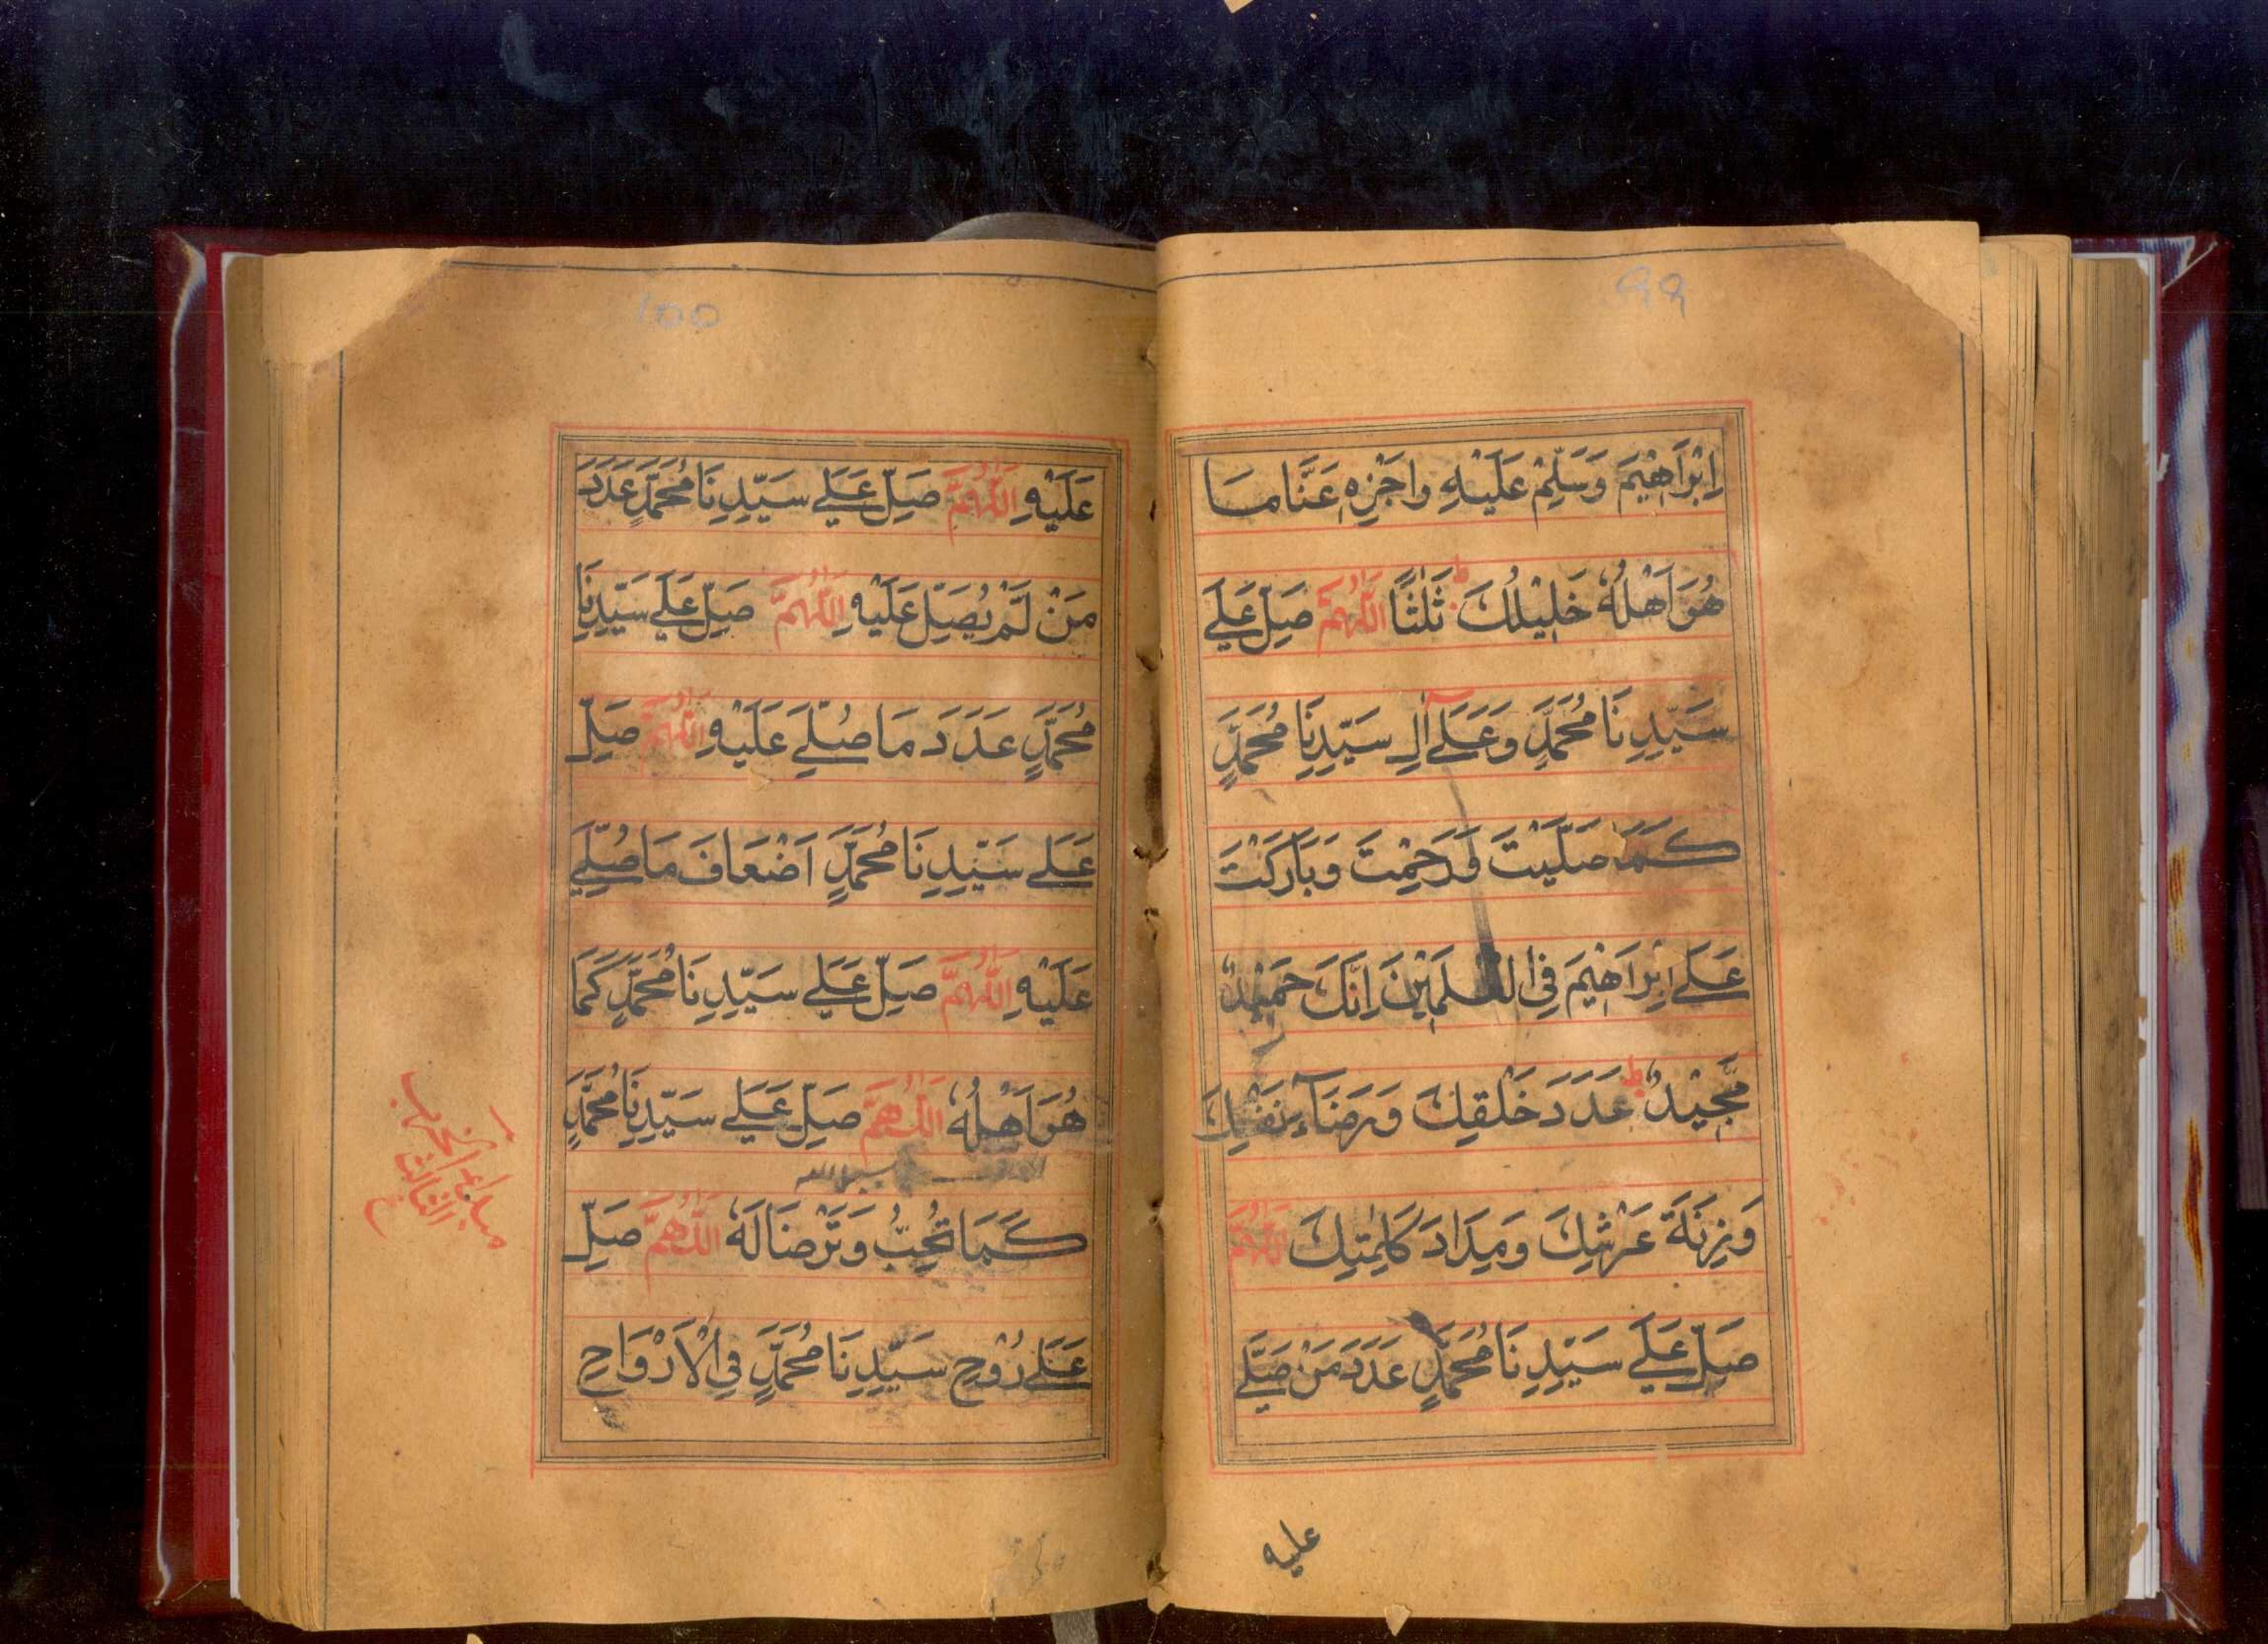 99
اِبْرَاهِيْمَ وَسَلِّمْ عَلَيْهِ وَاجْزِهِ عَنَّا مَا
هُوَ اَهْلُهٗ خَلِيْلُكَ ثَلٰثًا اَللّٰهُمَّ صَلِّ عَلٰے
سَيِّدِنَا مُحَمَّدٍ وَعَلٰے اٰلِ سَيِّدِنَا مُحَمَّدٍ
كَمَا صَلَّيْتَ وَرَحِمْتَ وَبَارَكْتَ
عَلٰے اِبْرَاهِيْمَ فِي الْعٰلَمِيْنَ اِنَّكَ حَمِيْدٌ
مَّجِيْدٌ ط عَدَدَ خَلْقِكَ وَرِضَآءِ نَفْسِكَ
وَزِنَةَ عَرْشِكَ وَمِدَادَ كَلِمٰتِكَ اَللّٰهُمَّ
صَلِّ عَلٰے سَيِّدِنَا مُحَمَّدٍ عَدَدَ مَنْ صَلّٰے
عليه
100
عَلَيْهِ اَللّٰهُمَّ صَلِّ عَلٰے سَيِّدِنَا مُحَمَّدٍ عَدَدَ
مَنْ لَّمْ يُصَلِّ عَلَيْهِ اَللّٰهُمَّ صَلِّ عَلٰے سَيِّدِنَا
مُحَمَّدٍ عَدَدَ مَا صُلِّےَ عَلَيْهِ اَللّٰهُمَّ صَلِّ
عَلٰے سَيِّدِنَا مُحَمَّدٍ اَضْعَافَ مَا صُلِّےَ
عَلَيْهِ اَللّٰهُمَّ صَلِّ عَلٰے سَيِّدِنَا مُحَمَّدٍ كَمَا
هُوَ اَهْلُهٗ اَللّٰهُمَّ صَلِّ عَلٰے سَيِّدِنَا مُحَمَّدٍ
كَمَا تُحِبُّ وَتَرْضَا لَهٗ اَللّٰهُمَّ صَلِّ
عَلٰے رُوْحِ سَيِّدِنَا مُحَمَّدٍ فِي الْاَرْوَاحِ